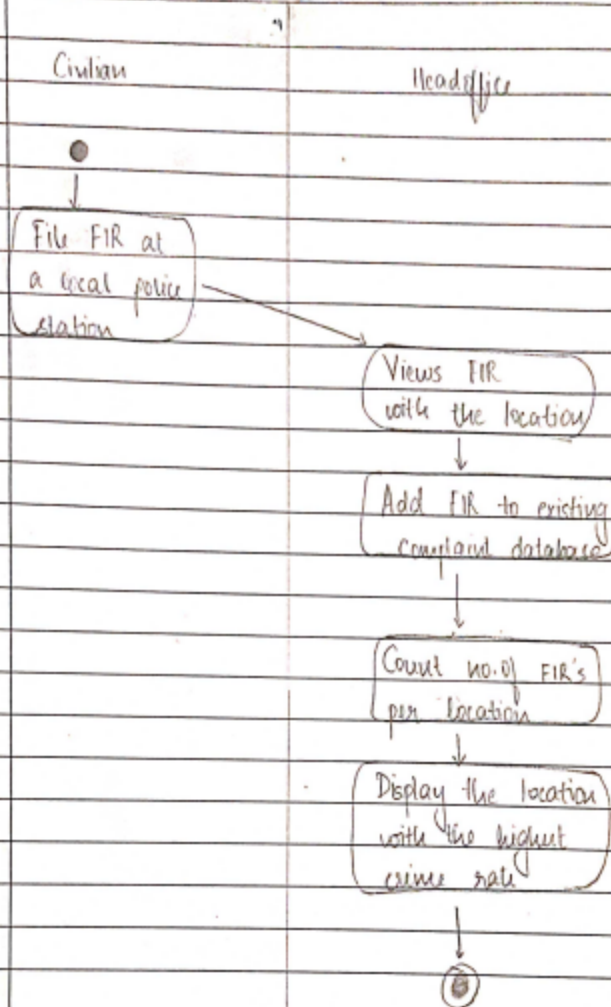 Civilian
Headoffice
File FIR at
a local police
station
Views FIR
with the location
Add FIR to existing
complaint database
Count no. of FIR's
per location
Display the location
with the highest
crime rate